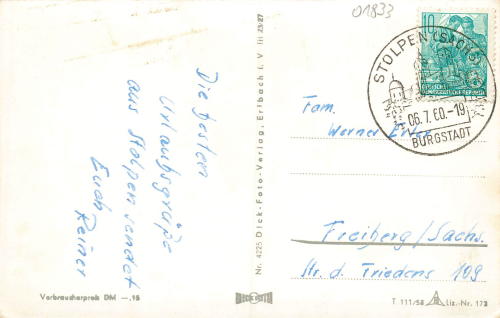 01833
Die besten
Urlaubsgrüße
aus Stolpen sendet
Euch
Reiner
Verbraucherpreis DM —.15
Nr. 4225 Dick-Foto-Verlag, Erlbach i. V. III 23/27
10
STOLPEN (SACHS)
06.7.60.-19
BURGSTADT
Fam.
Werner
Freiberg/Sachs.
Str. d. Friedens 109
T 111/58 Liz.-Nr. 173